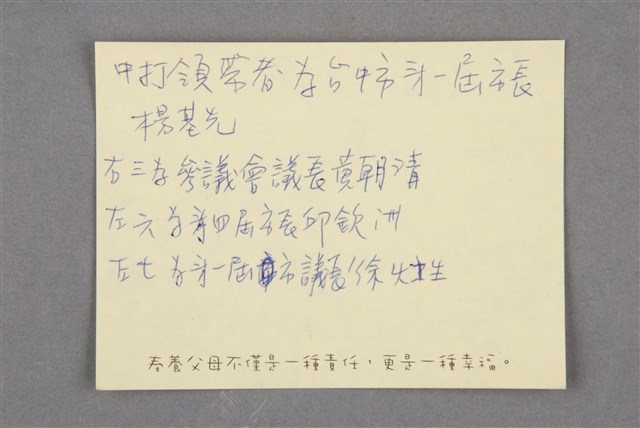 中打領帶者为台中市第一屆市長
楊基先
右三为參議會議長黃朝清
左六为第四屆市長邱欽洲
左七为第一屆市議長徐灶生
奉養父母不僅是一種責任，更是一種幸福。